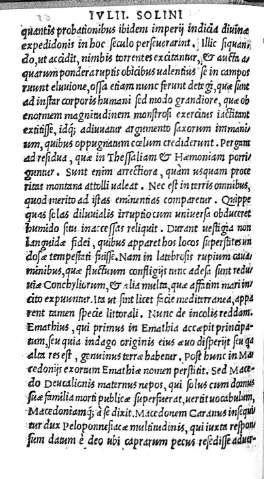 IVLII. SOLINI
quantis probationibus ibidem imperij indicia diuinæ
expeditionis in hoc seculo perseuerarint. Illic siquan
do, ut accidit, nimbis torrentes excitantur, & aucta a
quarum pondera ruptis obicibus ualentius se in campos
ruunt eluuione, ossa etiam nunc ferunt detegi, quæ sunt
ad instar corporis humani sed modo grandiore, quæ ob
enormem magnitudinem monstrosi exercitus iactitant
extitisse, idq; adiuuatur argumento saxorum immanium
um, quibus oppugnatum cœlum crediderunt. Pergam
ad residua, quæ in Thessaliam & Hæmoniam porri
guntur. Sunt enim arrectiora, quàm usquam proce
ritas montana attolli ualeat. Nec est in terris omnibus,
quod merito ad istas eminentias comparetur. Quippe
quas solas diluuialis irruptio cum uniuersa obduceret
humido situ inaccessas reliquit. Durant uestigia non
languidæ fidei, quibus apparet hos locos superstites un
dosæ tempestati fuisse. Nam in latebrosis rupium caua
minibus, quæ fluctuum conflictijs tunc adesa sunt redu
uiæ Conchyliorum, & alia multa, quæ affatim mari in
cito expuuntur. Ita ut sint licet facie mediterranea, appa
rent tamen specie littorali. Nunc de incolis reddam.
Emathius, qui primus in Emathia accepit principa-
tum, seu quia indago originis eius æuo disperijt seu qa
alta res est, genuinus terræ habetur. Post hunc in Ma
cedonis exortum Emathiæ nomen perstitit. Sed Mace
do Deucalionis maternus nepos, qui solus cum domus
suæ familia morti publicæ superfuerat, uertit uocabulum,
Macedoniamq; à se dixit. Macedonem Caranus insequi
tur dux Peloponnesiacæ multitudinis, qui iuxta respon
sum datum è deo ubi caprarum pecus resedisse aduer-